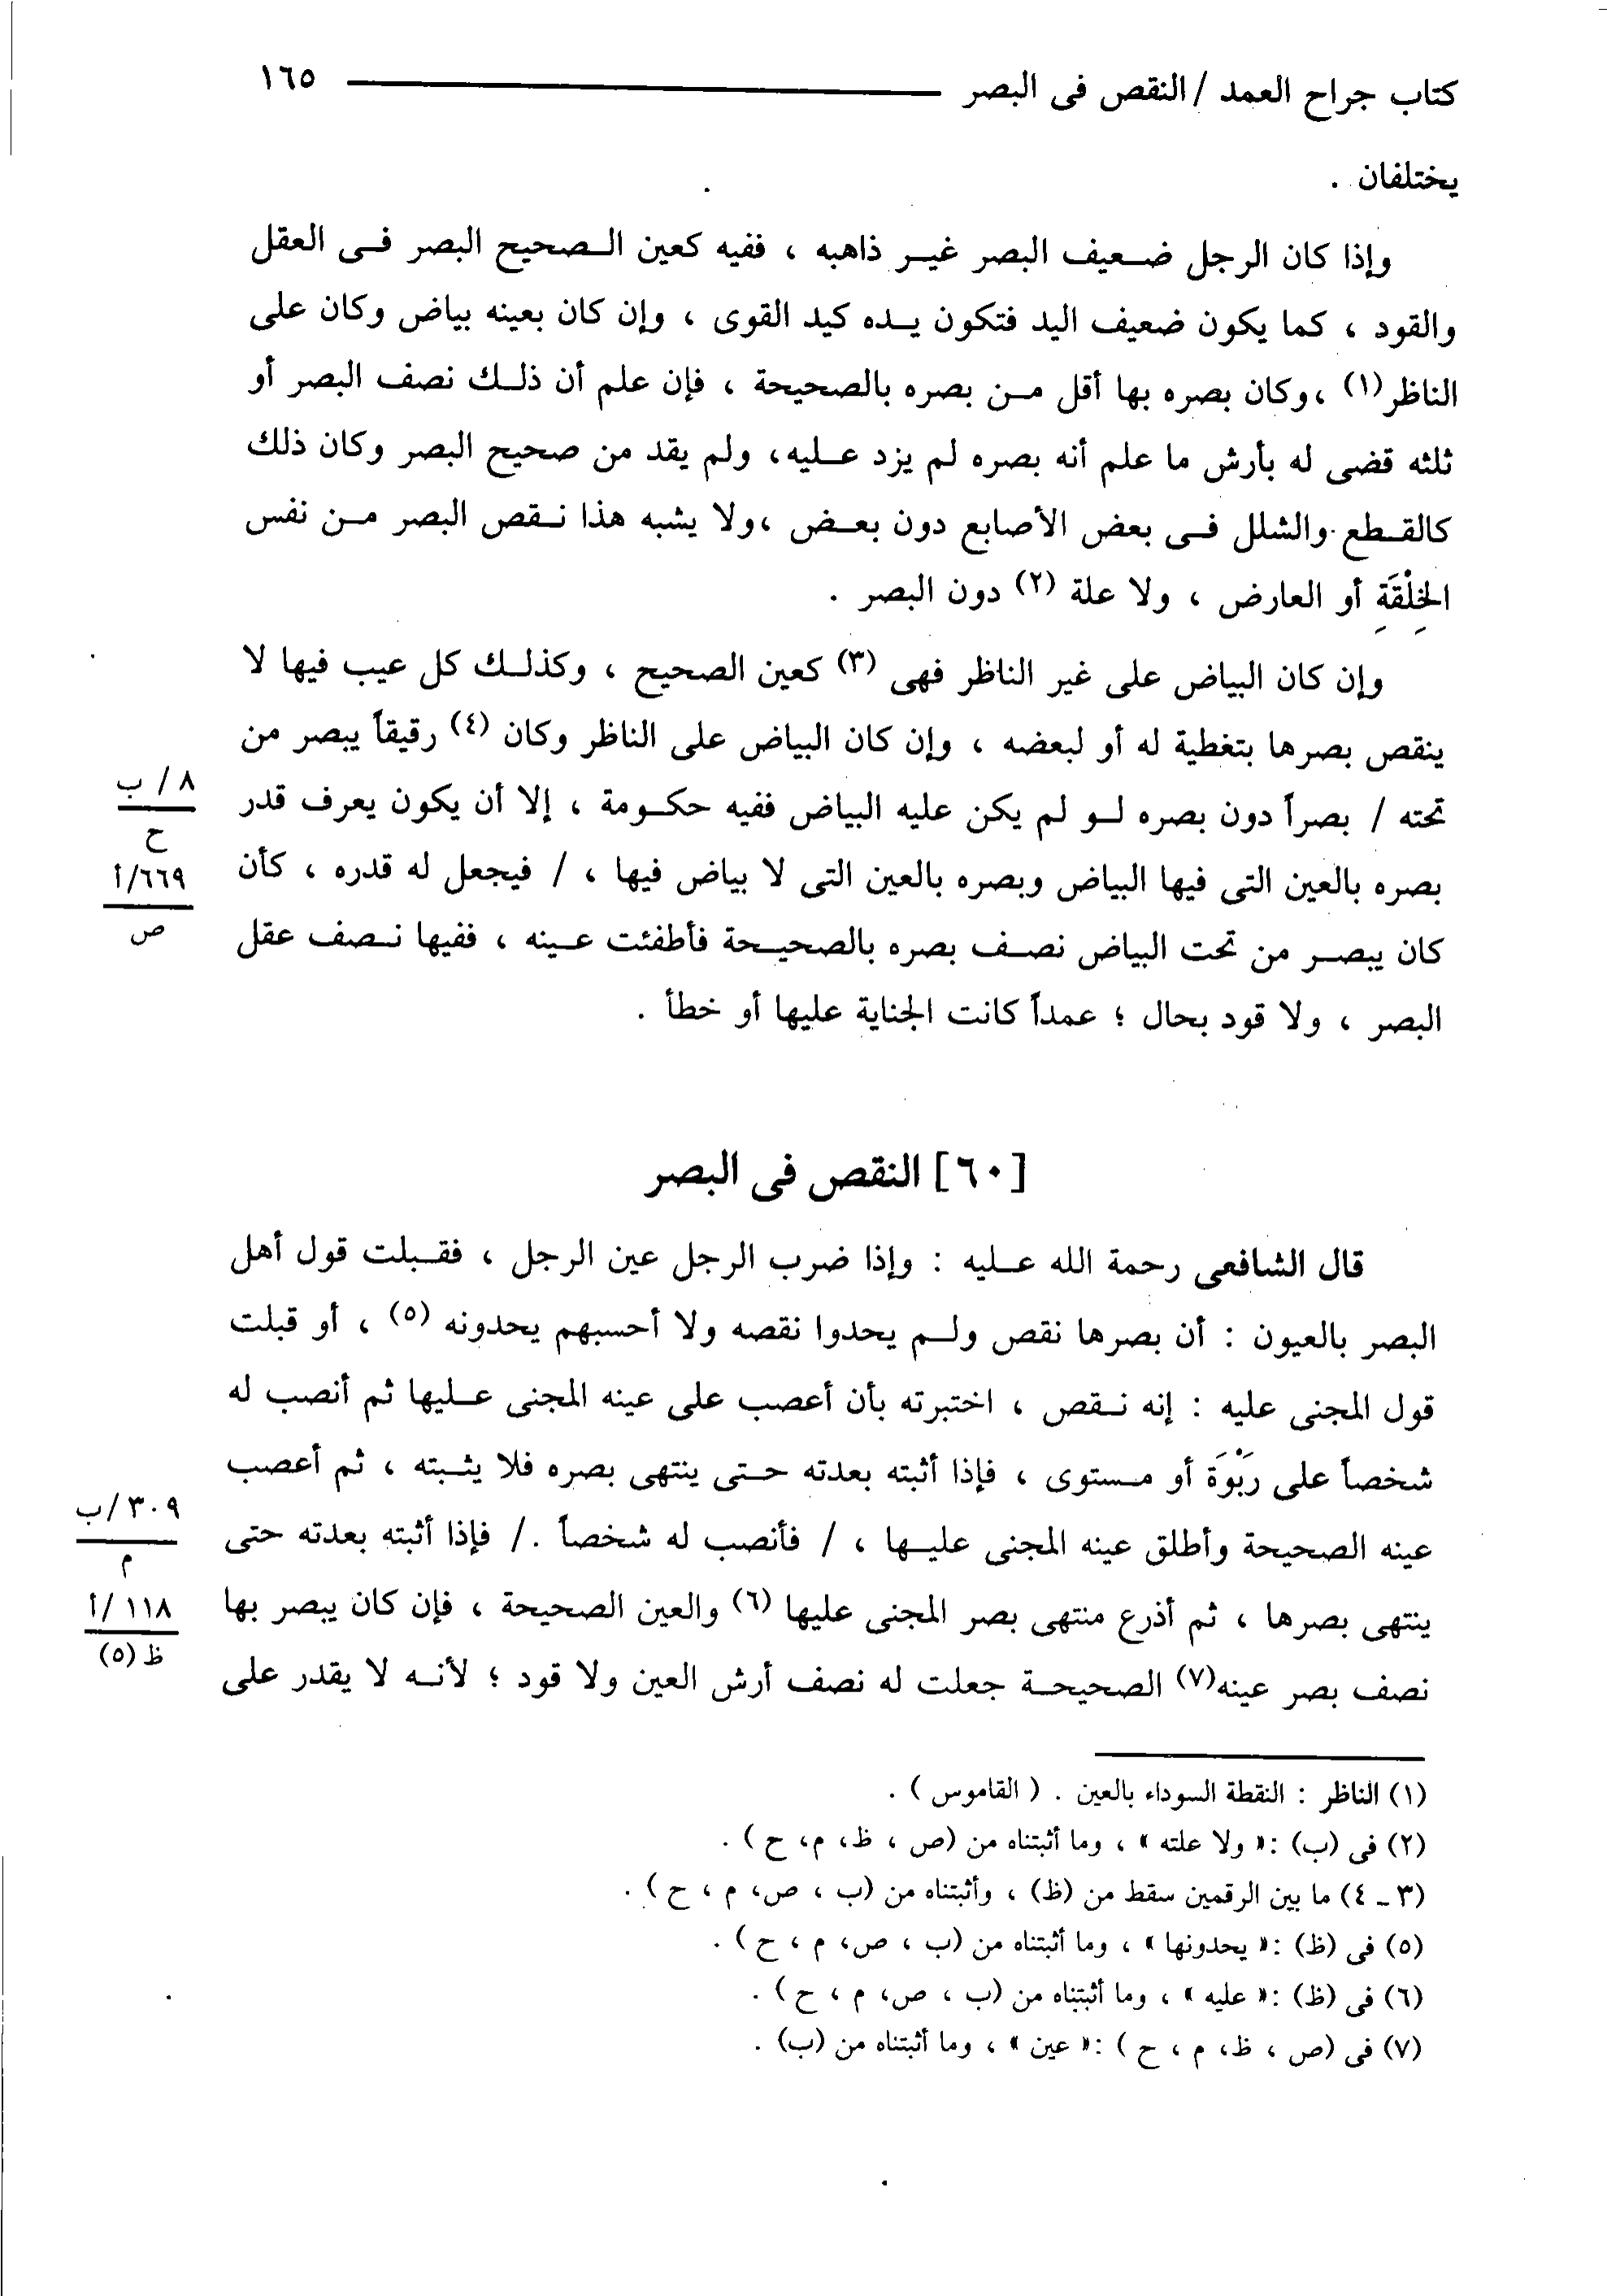 كتاب جراح العمد / النقص فى البصر ١٦٥
يختلفان .
وإذا كان الرجل ضعيف البصر غير ذاهبه ، ففيه كعين الصحيح البصر فى العقل
والقود ، كما يكون ضعيف اليد فتكون يده كيد القوى ، وإن كان بعينه بياض وكان على
الناظر(١) ،وكان بصره بها أقل من بصره بالصحيحة ، فإن علم أن ذلك نصف البصر أو
ثلثه قضى له بأرش ما علم أنه بصره لم يزد عليه، ولم يقد من صحيح البصر وكان ذلك
كالقطع والشلل فى بعض الأصابع دون بعض ،ولا يشبه هذا نقص البصر من نفس
الخِلْقَةِ أو العارض ، ولا علة (٢) دون البصر .
وإن كان البياض على غير الناظر فهى (٣) كعين الصحيح ، وكذلك كل عيب فيها لا
ينقص بصرها بتغطية له أو لبعضه ، وإن كان البياض على الناظر وكان (٤) رقيقاً يبصر من
تحته / بصراً دون بصره لو لم يكن عليه البياض ففيه حكومة ، إلا أن يكون يعرف قدر
بصره بالعين التى فيها البياض وبصره بالعين التى لا بياض فيها ، / فيجعل له قدره ، كأن
كان يبصر من تحت البياض نصف بصره بالصحيحة فأطفئت عينه ، ففيها نصف عقل
البصر ، ولا قود بحال ؛ عمداً كانت الجناية عليها أو خطأ .
٨ / ب
ح
٦٦٩/أ
ص
[٦٠] النقص فى البصر
قال الشافعى رحمة الله عليه : وإذا ضرب الرجل عين الرجل ، فقبلت قول أهل
البصر بالعيون : أن بصرها نقص ولم يحدوا نقصه ولا أحسبهم يحدونه (٥) ، أو قبلت
قول المجنى عليه : إنه نقص ، اختبرته بأن أعصب على عينه المجنى عليها ثم أنصب له
شخصاً على رَبْوَة أو مستوى ، فإذا أثبته بعدته حتى ينتهى بصره فلا يثبته ، ثم أعصب
عينه الصحيحة وأطلق عينه المجنى عليها ، / فأنصب له شخصاً ./ فإذا أثبته بعدته حتى
ينتهى بصرها ، ثم أذرع منتهى بصر المجنى عليها (٦) والعين الصحيحة ، فإن كان يبصر بها
نصف بصر عينه(٧) الصحيحة جعلت له نصف أرش العين ولا قود ؛ لأنه لا يقدر على
٣٠٩/ب
م
١١٨/أ
ظ (٥)
(١) الناظر : النقطة السوداء بالعين . ( القاموس ) .
(٢) فى (ب) :« ولا علته » ، وما أثبتناه من (ص ، ظ، م، ح ) .
(٣ ـ ٤) ما بين الرقمين سقط من (ظ) ، وأثبتناه من (ب ، ص، م ، ح ) .
(٥) فى (ظ) :« يحدونها » ، وما أثبتناه من (ب ، ص، م ، ح ) .
(٦) فى (ظ) :« عليه » ، وما أثبتناه من (ب ، ص، م ، ح ) .
(٧) فى (ص ، ظ، م ، ح ) :« عين » ، وما أثبتناه من (ب) .